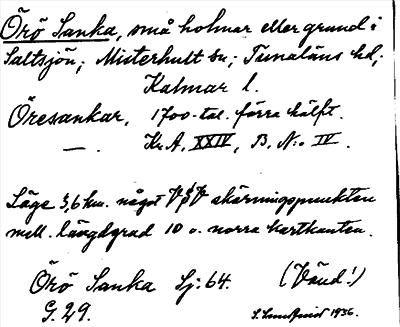 Örö Sanka, små holmar eller grund i
Saltsjön; Misterhult sn; Tunaläns hd;
Kalmar l.
Öresankar, 1700-tal. förra hälft.
— . Kr. A. XXIV, B. N:o IV.
Läge 3,6 km. något VSV skärningspunkten
mell. längdgrad 10 o. norra kartkanten.
Örö Sanka Sj: 64. (Vänd!)
G. 29. 1936.